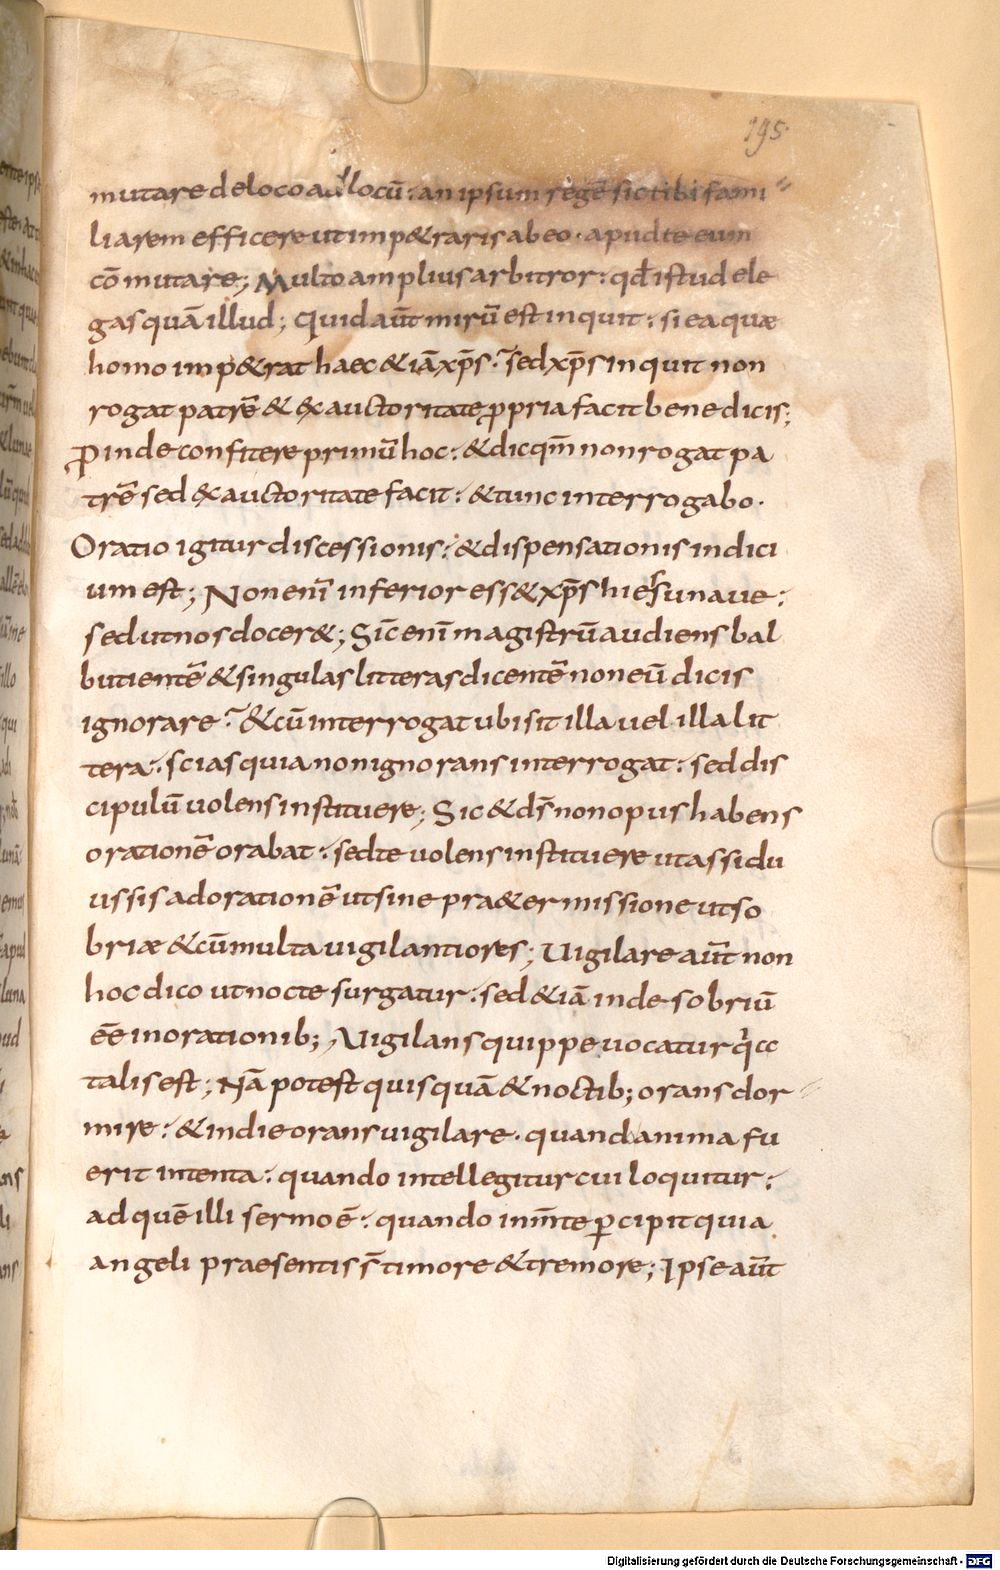 195.
mutare de loco ad locū: an ipsum regē sic tibi fami
liarem efficere ut imp&raris ab eo. apud te eum
cōmutare; Multo amplius arbitror: qđ istud ele
gas quā illud; Quid aūt mirū est inquit: si ea quæ
homo imp&rat haec &iā xp̄s. sed xp̄s inquit non
rogat patrē & ex auctoritate ꝓpria facit bene dicis;
Proinde confitere primū hoc: & dic qm̄ non rogat pa
trē sed ex auctoritate facit: & tunc interrogabo.
Oratio igitur discessionis: & dispensationis indici
um est; Non enī inferior ess& xp̄s hiesu naue:
sed ut nos docer&; Sic enī magistrū audiens bal
butientē & singulas litteras dicentē non eū dicis
ignorare: & cū interrogat ubi sit illa uel illa lit
tera: scias quia non ignorans interrogat: sed dis
cipulū uolens instituere; Sic & dn̄s non opus habens
orationē orabat: sed te uolens instituere ut assidu
us sis ad orationē ut sine pra&ermissione ut so
briæ & cū multa uigilantiores; Uigilare aūt non
hoc dico ut nocte surgatur: sed &iā inde sobriū
eē in orationib; Uigilans quippe uocatur qicc
talis est; Nā potest quisquā & noctib; orans dor
mire: & in die orans uigilare. quand anima fu
erit intenta: quando intellegitur cui loquitur:
ad quē illi sermo ē: quando in m̄te ꝑcipit quia
angeli praesentis s̄ timore & tremore; Ipse aūt
Digitalisierung gefördert durch die Deutsche Forschungsgemeinschaft - DFG